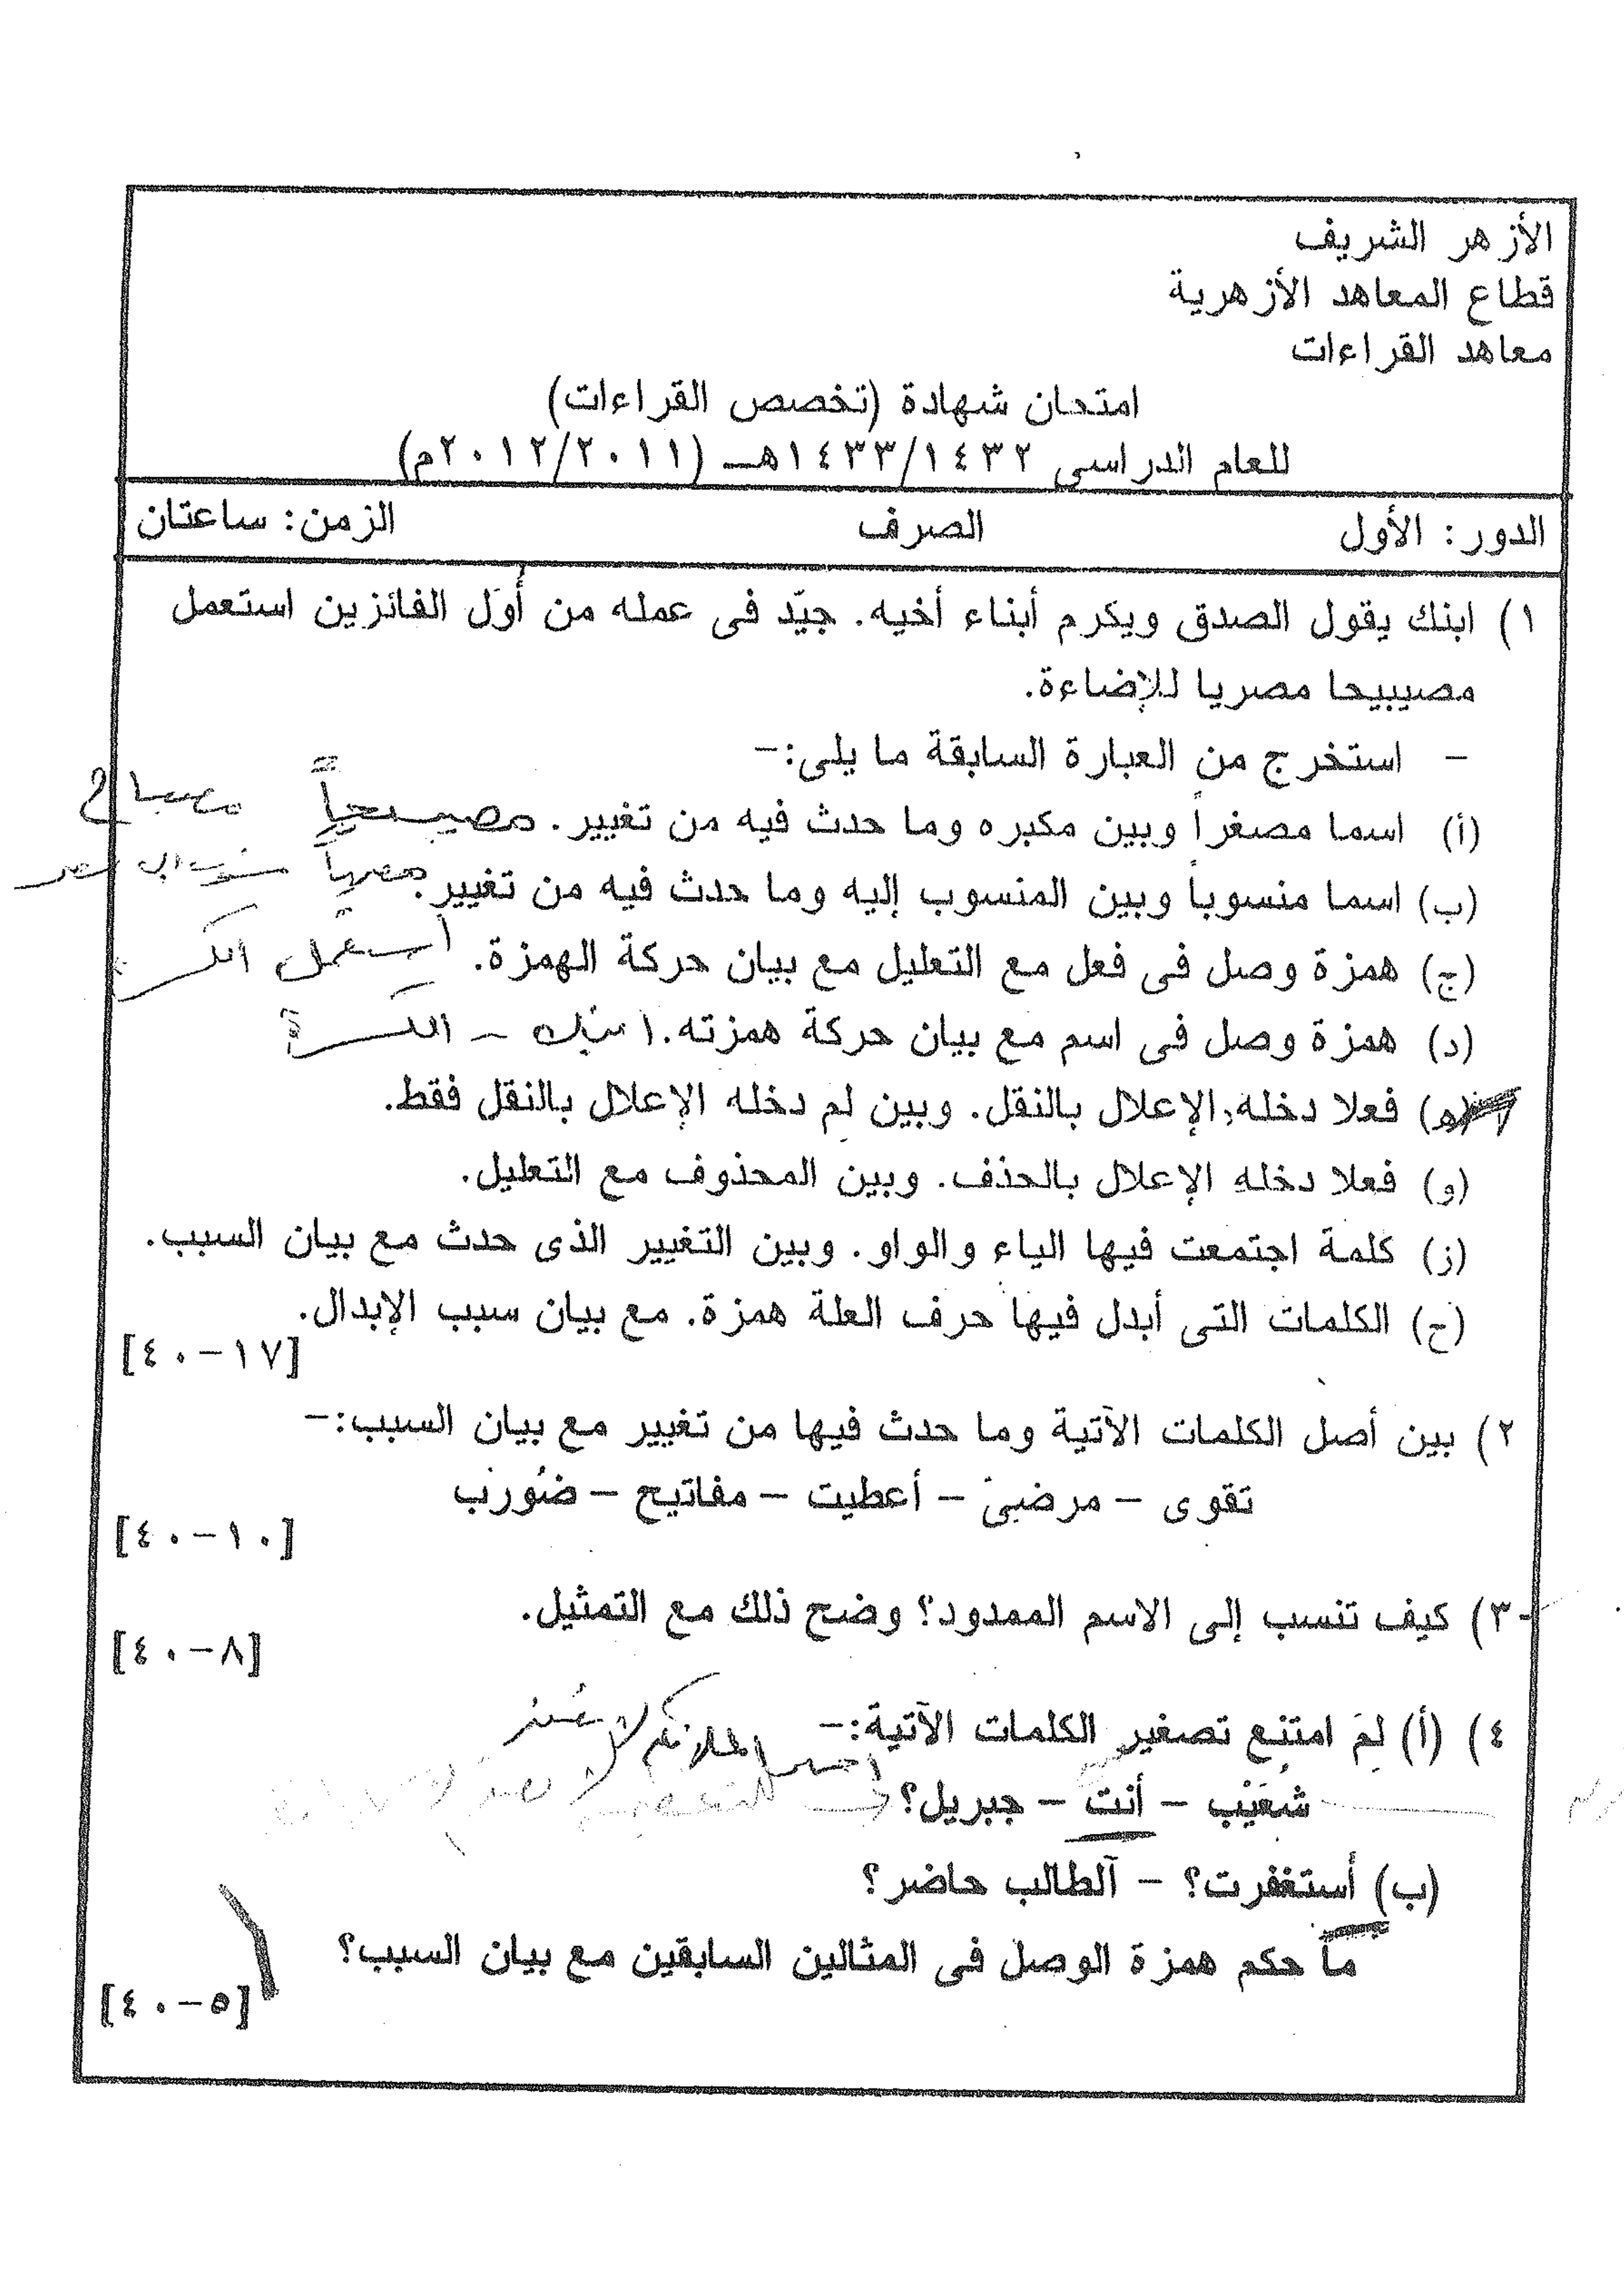 الأزهر الشريف
قطاع المعاهد الأزهرية
معاهد القراءات
امتحان شهادة (تخصص القراءات)
للعام الدراسى ١٤٣٣/١٤٣٢هـ (٢٠١٢/٢٠١١م)
الدور: الأول الصرف الزمن: ساعتان
١) ابنك يقول الصدق ويكرم أبناء أخيه. جيّد فى عمله من أوَل الفائزين استعمل
مصيبيحا مصريا للإضاءة.
- استخرج من العبارة السابقة ما يلى:-
(أ) اسما مصغراً وبين مكبره وما حدث فيه من تغيير. مصيبيحاً مصباح
(ب) اسما منسوباً وبين المنسوب إليه وما حدث فيه من تغيير. مصرياً
(ج) همزة وصل فى فعل مع التعليل مع بيان حركة الهمزة. استعمل الكسرة
(د) همزة وصل فى اسم مع بيان حركة همزته. ابنك - الكسرة
(ه) فعلا دخله الإعلال بالنقل. وبين لم دخله الإعلال بالنقل فقط.
(و) فعلا دخله الإعلال بالحذف. وبين المحذوف مع التعليل.
(ز) كلمة اجتمعت فيها الياء والواو. وبين التغيير الذى حدث مع بيان السبب.
(ح) الكلمات التى أبدل فيها حرف العلة همزة. مع بيان سبب الإبدال.
[١٧-٤٠]
٢) بين أصل الكلمات الآتية وما حدث فيها من تغيير مع بيان السبب:-
تقوى - مرضىّ - أعطيت - مفاتيح - ضُورب
[١٠-٤٠]
٣) كيف تنسب إلى الاسم الممدود؟ وضح ذلك مع التمثيل.
[٨-٤٠]
٤) (أ) لمَ امتنع تصغير الكلمات الآتية:-
شُعَيْب - أنت - جبريل؟
(ب) أستغفرت؟ - آلطالب حاضر؟
ما حكم همزة الوصل فى المثالين السابقين مع بيان السبب؟
[٥-٤٠]